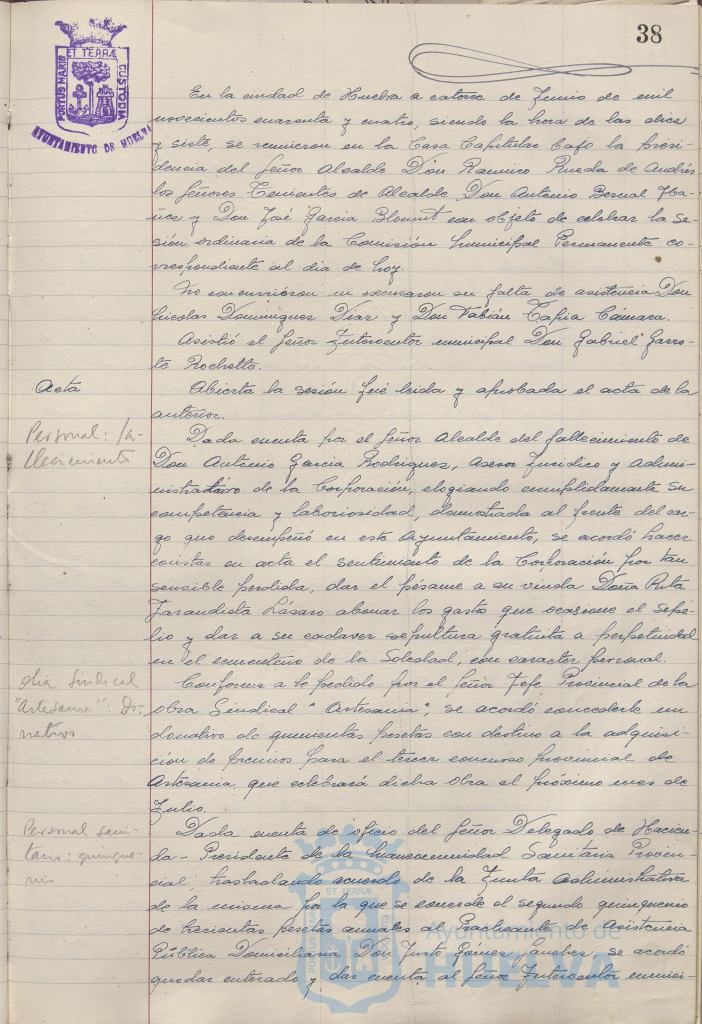 38
PORTUS MARIS ET TERRÆ CUSTODIA
AYUNTAMIENTO DE HUELVA
En la ciudad de Huelva a catorce de Junio de mil
novecientos cuarenta y cuatro, siendo la hora de las doce
y siete, se reunieron en la Casa Capitular bajo la presi-
dencia del Señor Alcalde Don Ramiro Rueda de Andrés
los Señores Tenientes de Alcalde Don Antonio Bernal Ybá-
ñez y Don José Garcia Blount con objeto de celebrar la se-
sión ordinaria de la Comisión Municipal Permanente co-
rrespondiente al dia de hoy.
No concurrieron ni excusaron su falta de asistencia Don
Nicolas Dominguez Diaz y Don Fabián Tapia Camara.
Asistió el Señor Interventor municipal Don Gabriel Garro-
te Rochette.
Acta
Abierta la sesión fué leida y aprobada el acta de la
anterior.
Personal: fa-
llecimiento
Dada cuenta por el Señor Alcalde del fallecimiento de
Don Antonio Garcia Rodriguez, Asesor Juridico y admini-
nistrativo de la Corporación, elogiando cumplidamente su
competencia y laboriosidad, demostrada al frente del car-
go que desempeñó en este Ayuntamiento, se acordó hacer
constar en acta el sentimiento de la Corporación por tan
sensible perdida, dar el pésame a su viuda Doña Rita
Lázaro abonar los gastos que ocasione el sepe-
lio y dar a su cadaver sepultura gratuita a perpetuidad
en el cementerio de la Soledad, con caracter personal.
Obra Sindical
"Artesania": Do-
nativos
Conforme a lo pedido por el Señor Jefe Provincial de la
obra Sindical "Artesania", se acordó concederle un
donativo de quinientas pesetas con destino a la adquisi-
ción de premios para el tercer concurso provincial de
Artesania que celebrará dicha Obra el próximo mes de
Julio.
Personal sani-
tario: quinque-
nios
Dada cuenta de oficio del Señor Delegado de Hacien-
da - Presidente de la Mancomunidad Sanitaria Provin-
cial, trasladando acuerdo de la Junta Administrativa
de la misma por la que se concede el segundo quinquenio
de trecientas pesetas anuales al Practicante de Asistencia
Pública Domiciliaria Don Justo Gómez se acordó
quedar enterado y dar cuenta al Señor Interventor munici-
Ayuntamiento de
HUELVA